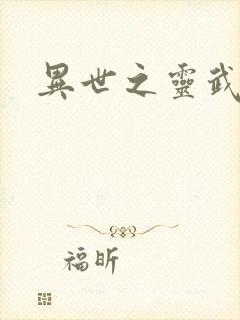 異世之靈武
福昕